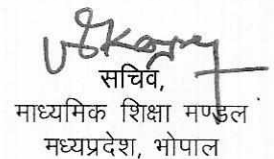 सचिव,
माध्यमिक शिक्षा मण्डल
मध्यप्रदेश, भोपाल